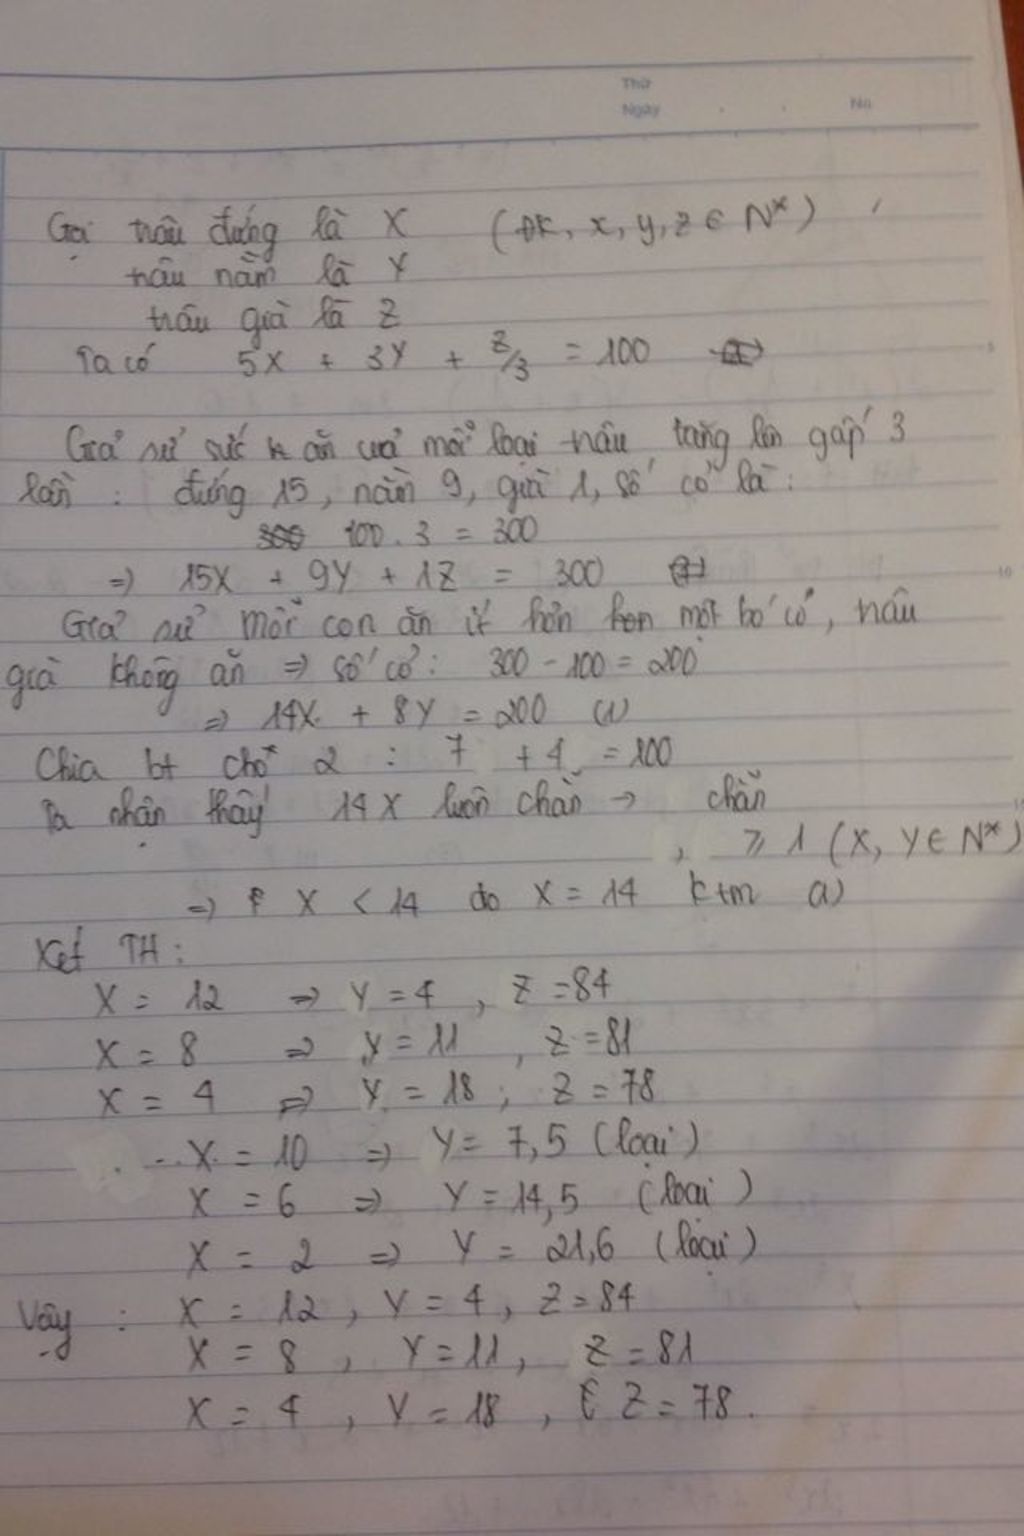 Thứ
Ngày No
Gọi trâu đứng là X (ĐK, x, y, z ∈ N*)
trâu nằm là Y
trâu già là Z
Ta có 5X + 3Y + z/3 = 100
Giả sử sức ăn của mỗi loại trâu tăng lên gấp 3
lần : đứng 15, nằm 9, già 1, số cỏ là :
100 . 3 = 300
=> 15X + 9Y + 1Z = 300
Giả sử mỗi con ăn ít hơn một bó cỏ, trâu
già không ăn => số cỏ : 300 - 100 = 200
=> 14X + 8Y = 200 (1)
Chia bt cho 2 : 7 + 4 = 100
Ta nhận thấy 14X luôn chẵn → chẵn
, ≥ 1 (X, Y ∈ N*)
=> X < 14 do X = 14 ktm
Xét TH :
X = 12 => Y = 4 , Z = 84
X = 8 => y = 11 , Z = 81
X = 4 => Y = 18 ; Z = 78
X = 10 => Y = 7,5 (loại)
X = 6 => Y = 14,5 (loại)
X = 2 => Y = 21,6 (loại)
Vậy : X = 12 , Y = 4 , Z = 84
X = 8 , Y = 11 , Z = 81
X = 4 , Y = 18 , Z = 78 .